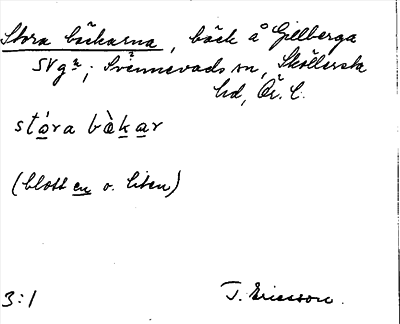 Stora bäckarna, bäck å Gillberga
SVgr; Svennevads sn, Sköllersta
hd, Ör. l.
stóra bàkar
(blott en o. liten)
3:1 J. Ericsson.